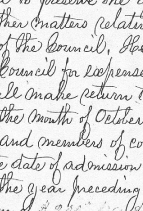 to preserve the
ther matters relatin
of the Council. He
Council for expense
ll make return
the month of October
and members of co
e date of admission
the year preceding